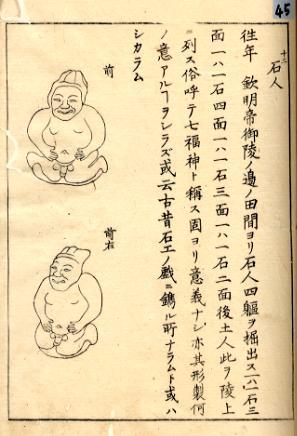 45
十二
石人
往年 欽明帝御陵ノ邉ノ田間ヨリ石人四軀ヲ掘出ス一ハ石三
面一ハ石四面一ハ石三面一ハ石二面後土人此ヲ陵上
ニ列ス俗呼テ七福神ト稱ス固ヨリ意義ナシ亦其形製何
ノ意アルヿヲシラズ或云古昔石工ノ戯ニ鐫ル所ナラムト或ハ
シカラム
前
前右